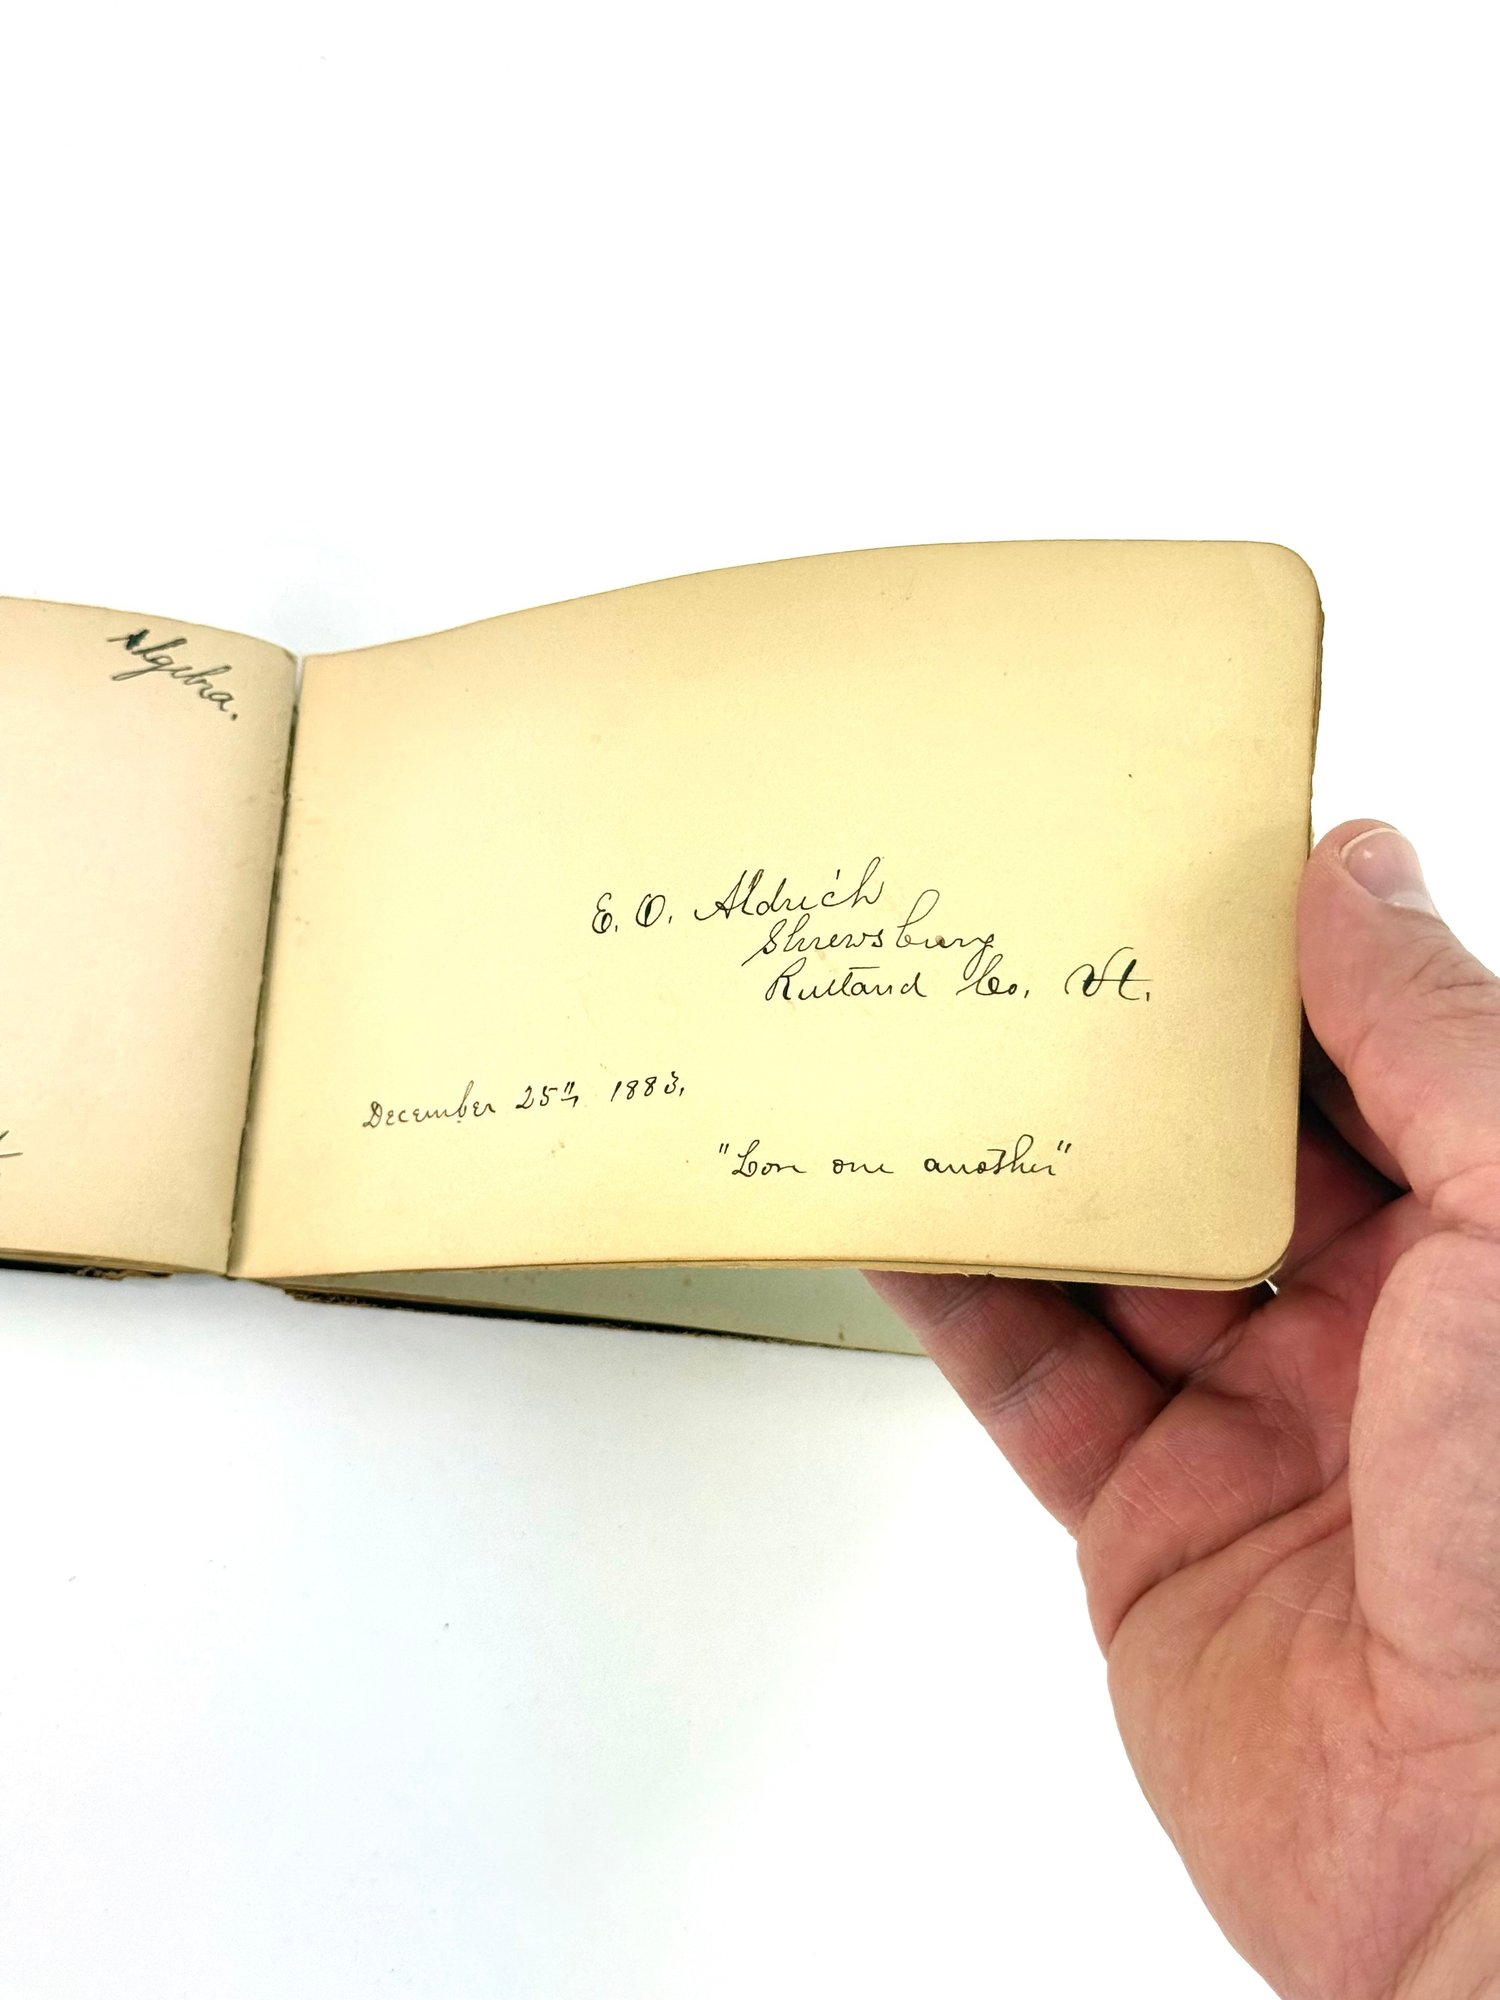 Algebra.
E. O. Aldrich
Shrewsbury
Rutland Co. Vt.
December 25th, 1883.
"Love one another"